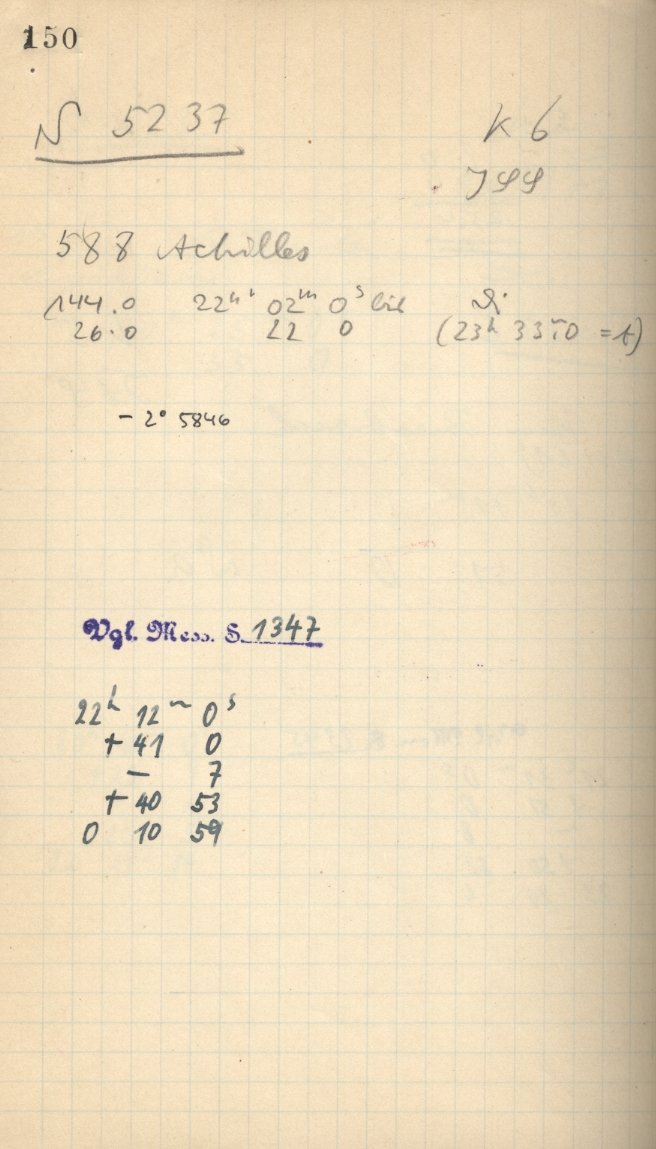 150
N 5237 K 6
JSS
588 Achilles
144.0 22ʰ 02ᵐ 0ˢ bis Di
26.0 22 0 (23ʰ 33 50 = t)
- 2° 5846
Vgl. Mess. S. 1347
22ʰ 12ᵐ 0ˢ
+ 41 0
- 7
+ 40 53
0 10 59